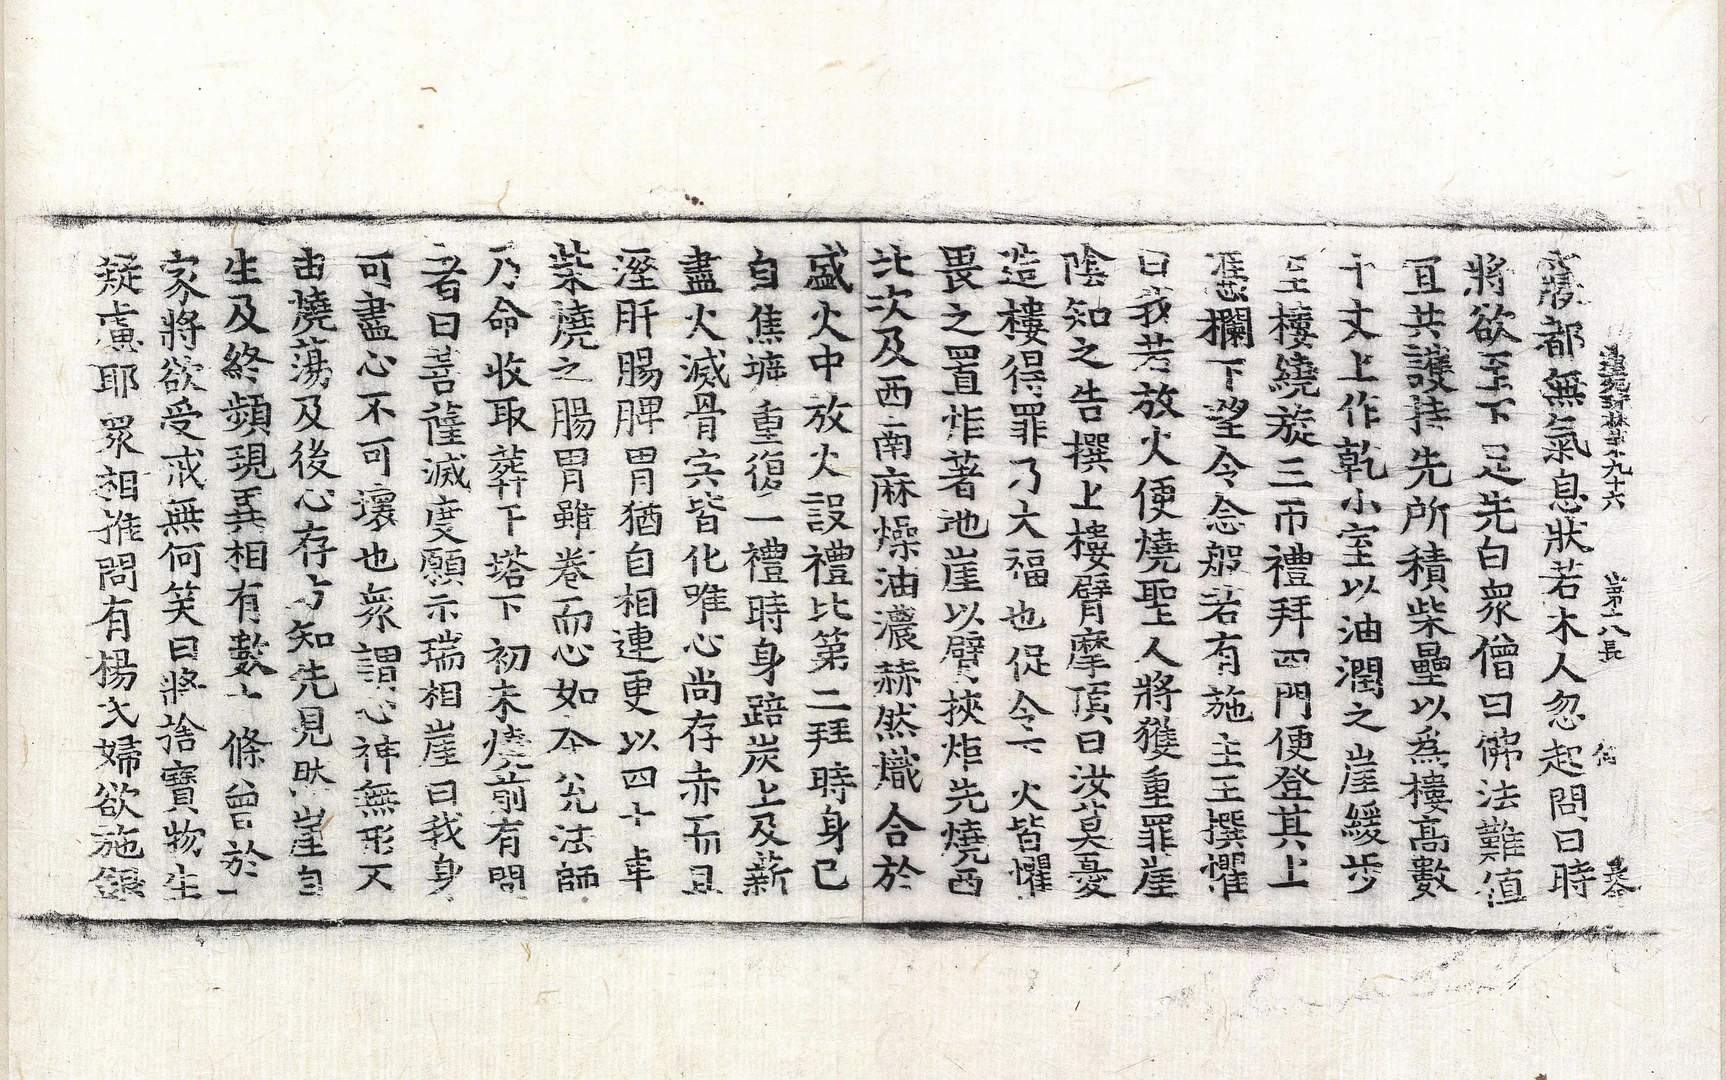 法苑珠林第九十六 第十八張 何
寢都無氣息狀若木人忽起問曰時
將欲至下足先白衆僧曰佛法難值
宜共護持先所積柴壘以爲樓高數
十丈上作乾小室以油潤之崖緩步
至樓繞旋三帀禮拜四門便登其上
憑欄下望令念般若有施主王撰懼
曰我若放火便燒聖人將獲重罪崖
陰知之告撰上樓臂摩頂曰汝莫憂
造樓得罪乃大福也促令下火皆懼
畏之置炬著地崖以臂挾炬先燒西
北次及西南麻燥油濃赫然熾合於
盛火中放火設禮比第二拜時身已
自焦坼重復一禮時身踣炭上及薪
盡火滅骨肉皆化唯心尚存赤而且
溼肝腸脾胃猶自相連更以四十車
柴燒之腸胃雖卷而心如本兌法師
乃命收取葬于塔下初未燒前有問
者曰菩薩滅度願示瑞相崖曰我身
可盡心不可壞也衆謂心神無形不
由燒蕩及後心存方知先見然崖自
生及終頻現異相有數十條曾於一
家將欲受戒無何笑曰將捨寶物生
疑慮耶衆相推問有楊氏婦欲施銀